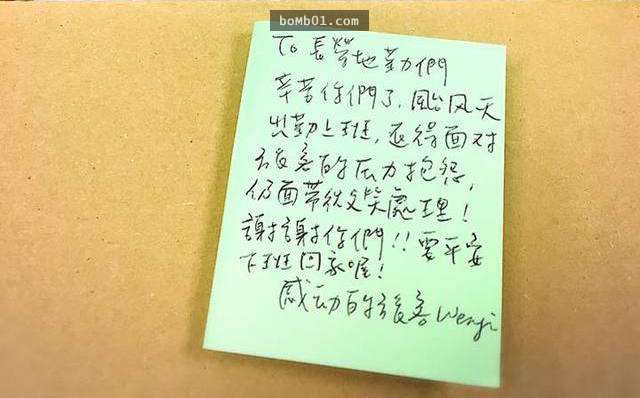 boMb01.com
To 長榮地勤們
辛苦你們了,颱风天
出勤上班,还得面对
旅客的压力抱怨,
仍面帶微笑處理!
謝謝你們!! 要平安
下班回家喔!
感动的旅客 Wenji